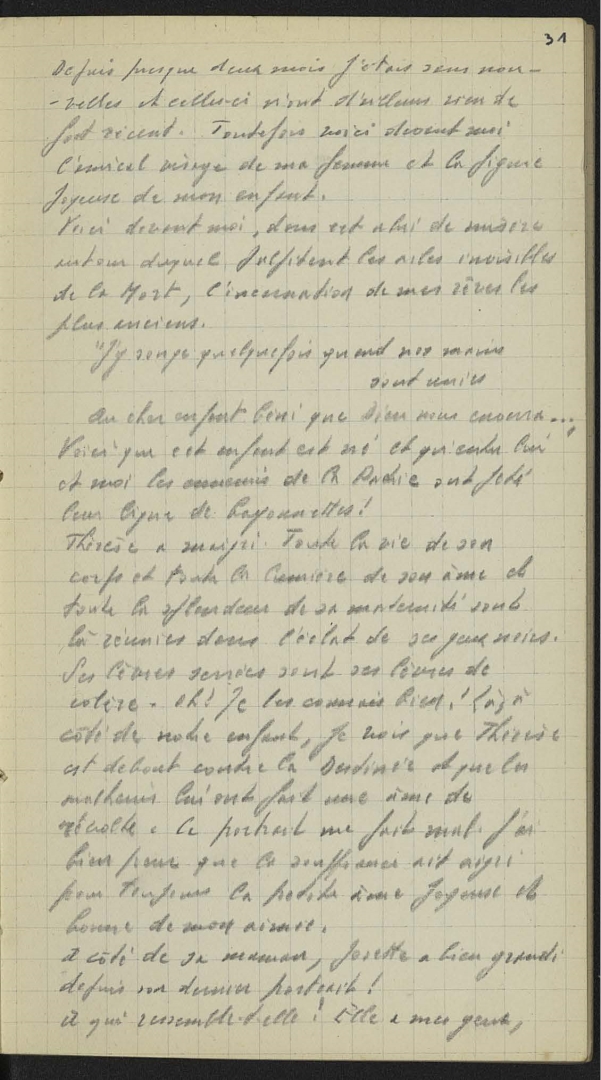 31
Depuis presque deux mois j'étais sans nou-
-velles et celles-ci n'ont d'ailleurs rien de
fort récent. Toutefois voici devant moi
l'amical visage de ma femme et la figure
joyeuse de mon enfant.
Voici devant moi, dans cet abri de misère
autour duquel palpitent les ailes invisibles
de la Mort, l'incarnation de mes rêves les
plus anciens.
"J'y songe quelquefois quand nos mains
sont unies
Au cher enfant béni que Dieu nous enverra..."
Voici que cet enfant est né et qu'entre lui
et moi les ennemis de la Patrie ont jeté
leur ligne de bayonnettes!
Thérèse a maigri. Toute la vie de son
corps et toute la lumière de son âme et
toute la splendeur de sa maternité sont
là réunies dans l'éclat de ses yeux noirs.
Ses lèvres serrées sont ses lèvres de
colère. Oh! Je les connais bien! Là, à
côté de notre enfant, je vois que Thérèse
est debout contre la Destinée et que les
malheurs lui ont fait une âme de
révolte. Ce portrait me fait mal. J'ai
bien peur que la souffrance ait aigri
pour toujours la petite âme joyeuse et
bonne de mon aimée.
A côté de sa maman, Josette a bien grandi
depuis son dernier portrait!
A qui ressemble-t-elle? Elle a mes yeux,